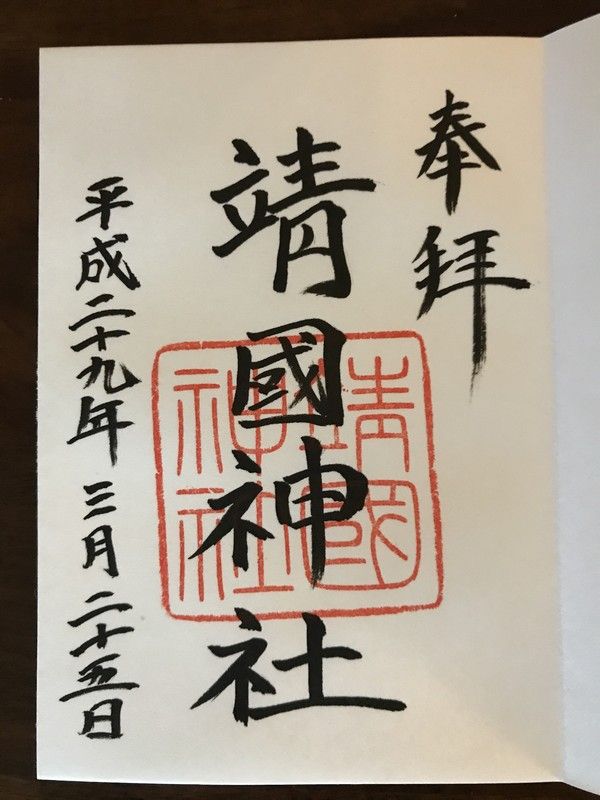 奉拝
靖國神社
靖國
神社
平成二十九年三月二十五日